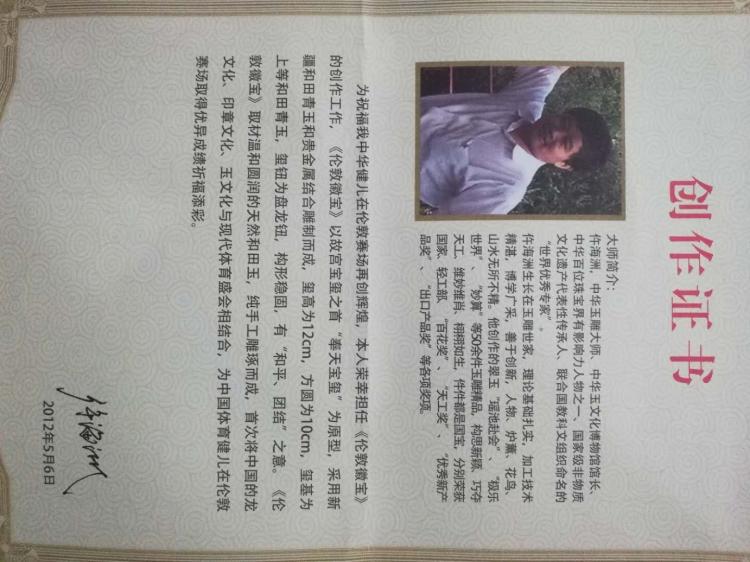 创作证书
大师简介：
仵海洲，中华玉雕大师，中华玉文化博物馆馆长、
中华百位珠宝界有影响力人物之一、国家级非物质
文化遗产代表性传承人、联合国教科文组织命名的
“世界优秀专家”。
仵海洲生长在玉雕世家，理论基础扎实，加工技术
精湛，博学广采，善于创新，人物、炉薰、花鸟、
山水无所不精。他创作的翠玉“瑶池赴会”、“极乐
世界”、“妙算”等50余件玉雕精品，构思新颖、巧夺
天工、维妙维肖、栩栩如生，件件都是国宝，分别荣获
国家、轻工部、“百花奖”、“天工奖”、“优秀新产
品奖”、“出口产品奖”等各项奖项。
为祝福我中华健儿在伦敦赛场再创辉煌，本人荣幸担任《伦敦徽宝》
的创作工作，《伦敦徽宝》以故宫宝玺之首“奉天宝玺”为原型，采用新
疆和田青玉和贵金属结合雕制而成，玺高为12cm，方圆为10cm，玺基为
上等和田青玉，玺钮为盘龙钮，构形稳固，有“和平、团结”之意。《伦
敦徽宝》取材温和圆润的天然和田玉，纯手工雕琢而成，首次将中国的龙
文化、印章文化、玉文化与现代体育盛会相结合，为中国体育健儿在伦敦
赛场取得优异成绩祈福添彩。
仵海洲
2012年5月6日